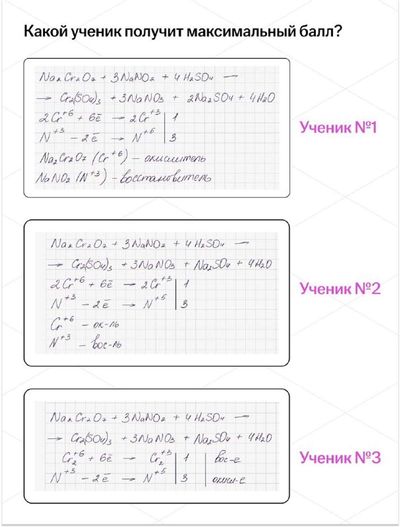 Какой ученик получит максимальный балл?
Na₂Cr₂O₇ + 3NaNO₂ + 4H₂SO₄ —
→ Cr₂(SO₄)₃ + 3NaNO₃ + 2Na₂SO₄ + 4H₂O
2Cr⁺⁶ + 6ē → 2Cr⁺³ | 1
N⁺³ − 2ē → N⁺⁵ | 3
Na₂Cr₂O₇ (Cr⁺⁶) – окислитель
NaNO₂ (N⁺³) – восстановитель
Ученик №1
Na₂Cr₂O₇ + 3NaNO₂ + 4H₂SO₄ —
→ Cr₂(SO₄)₃ + 3NaNO₃ + Na₂SO₄ + 4H₂O
2Cr⁺⁶ + 6ē → 2Cr⁺³ | 1
N⁺³ − 2ē → N⁺⁵ | 3
Cr⁺⁶ – ок-ль
N⁺³ – вос-ль
Ученик №2
Na₂Cr₂O₇ + 3NaNO₂ + 4H₂SO₄ —
→ Cr₂(SO₄)₃ + 3NaNO₃ + Na₂SO₄ + 4H₂O
Cr₂⁺⁶ + 6ē → Cr₂⁺³ | 1 | вос-е
N⁺³ − 2ē → N⁺⁵ | 3 | окисл-е
Ученик №3